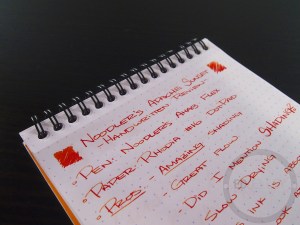 Noodler's Apache Sunset
- Handwritten Review -
• Pen: Noodlers Ahab Flex
• Paper: Rhodia #16 DotPad
• Pros: Amazing Shading
Great Flow
Did I mention SHADING
Slow-Drying
Ink is